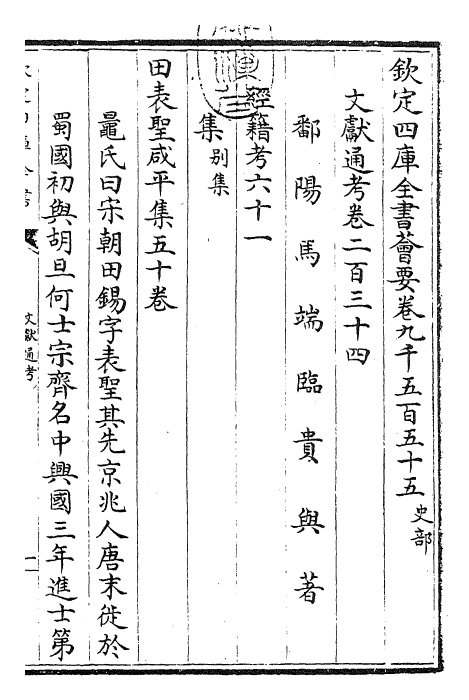 欽定四庫全書薈要卷九千五百五十五史部
文獻通考卷二百三十四
鄱陽馬端臨貴與著
經籍考六十一
集別集
田表聖咸平集五十卷
鼂氏曰宋朝田錫字表聖其先京兆人唐末徙於
蜀國初與胡旦何士宗齊名中興國三年進士第
文獻通考